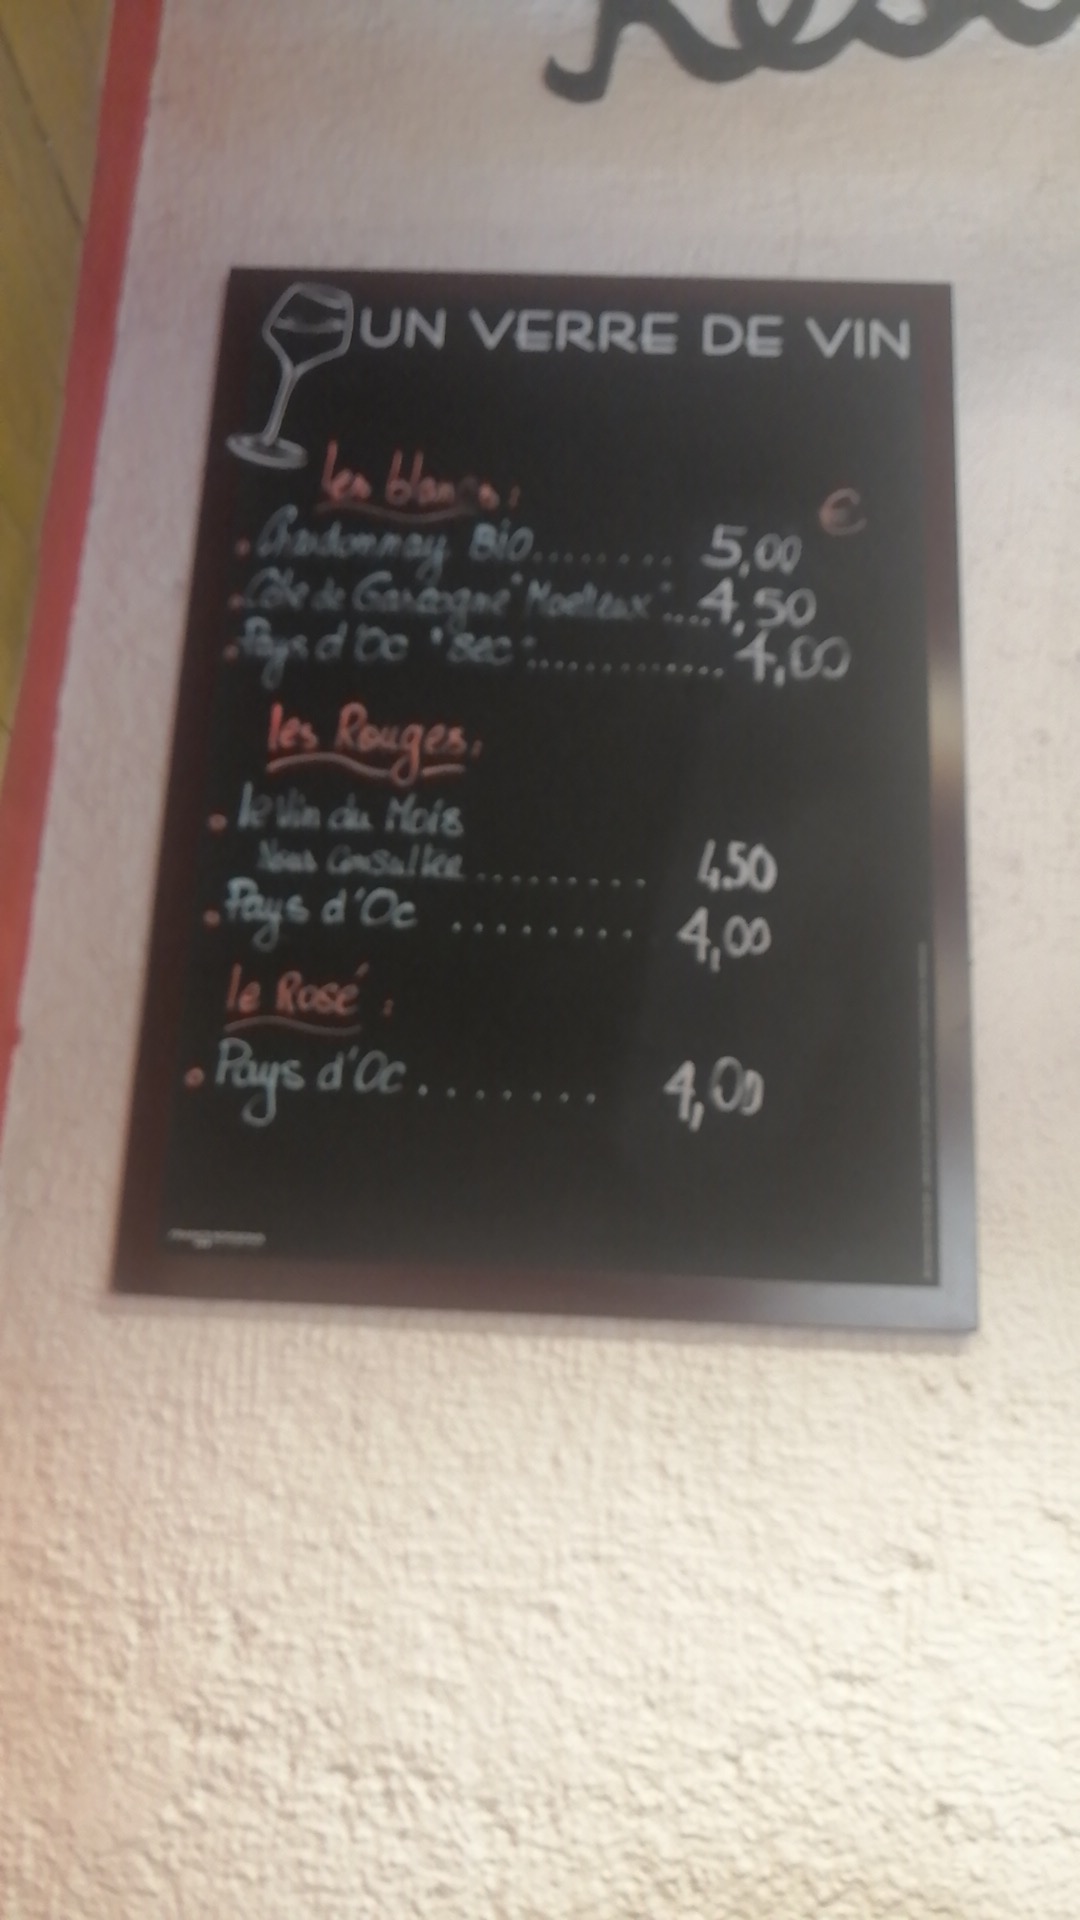 UN VERRE DE VIN
les blancs :
€
. Chardonnay BiO........ 5,00
. Côte de Gascogne "Moelleux"....4,50
. Pays d'Oc "sec"............. 4,00
les Rouges :
. le Vin du Mois
Nous Consulter ......... 4.50
. Pays d'Oc ........ 4,00
le Rosé :
. Pays d'Oc ....... 4,00